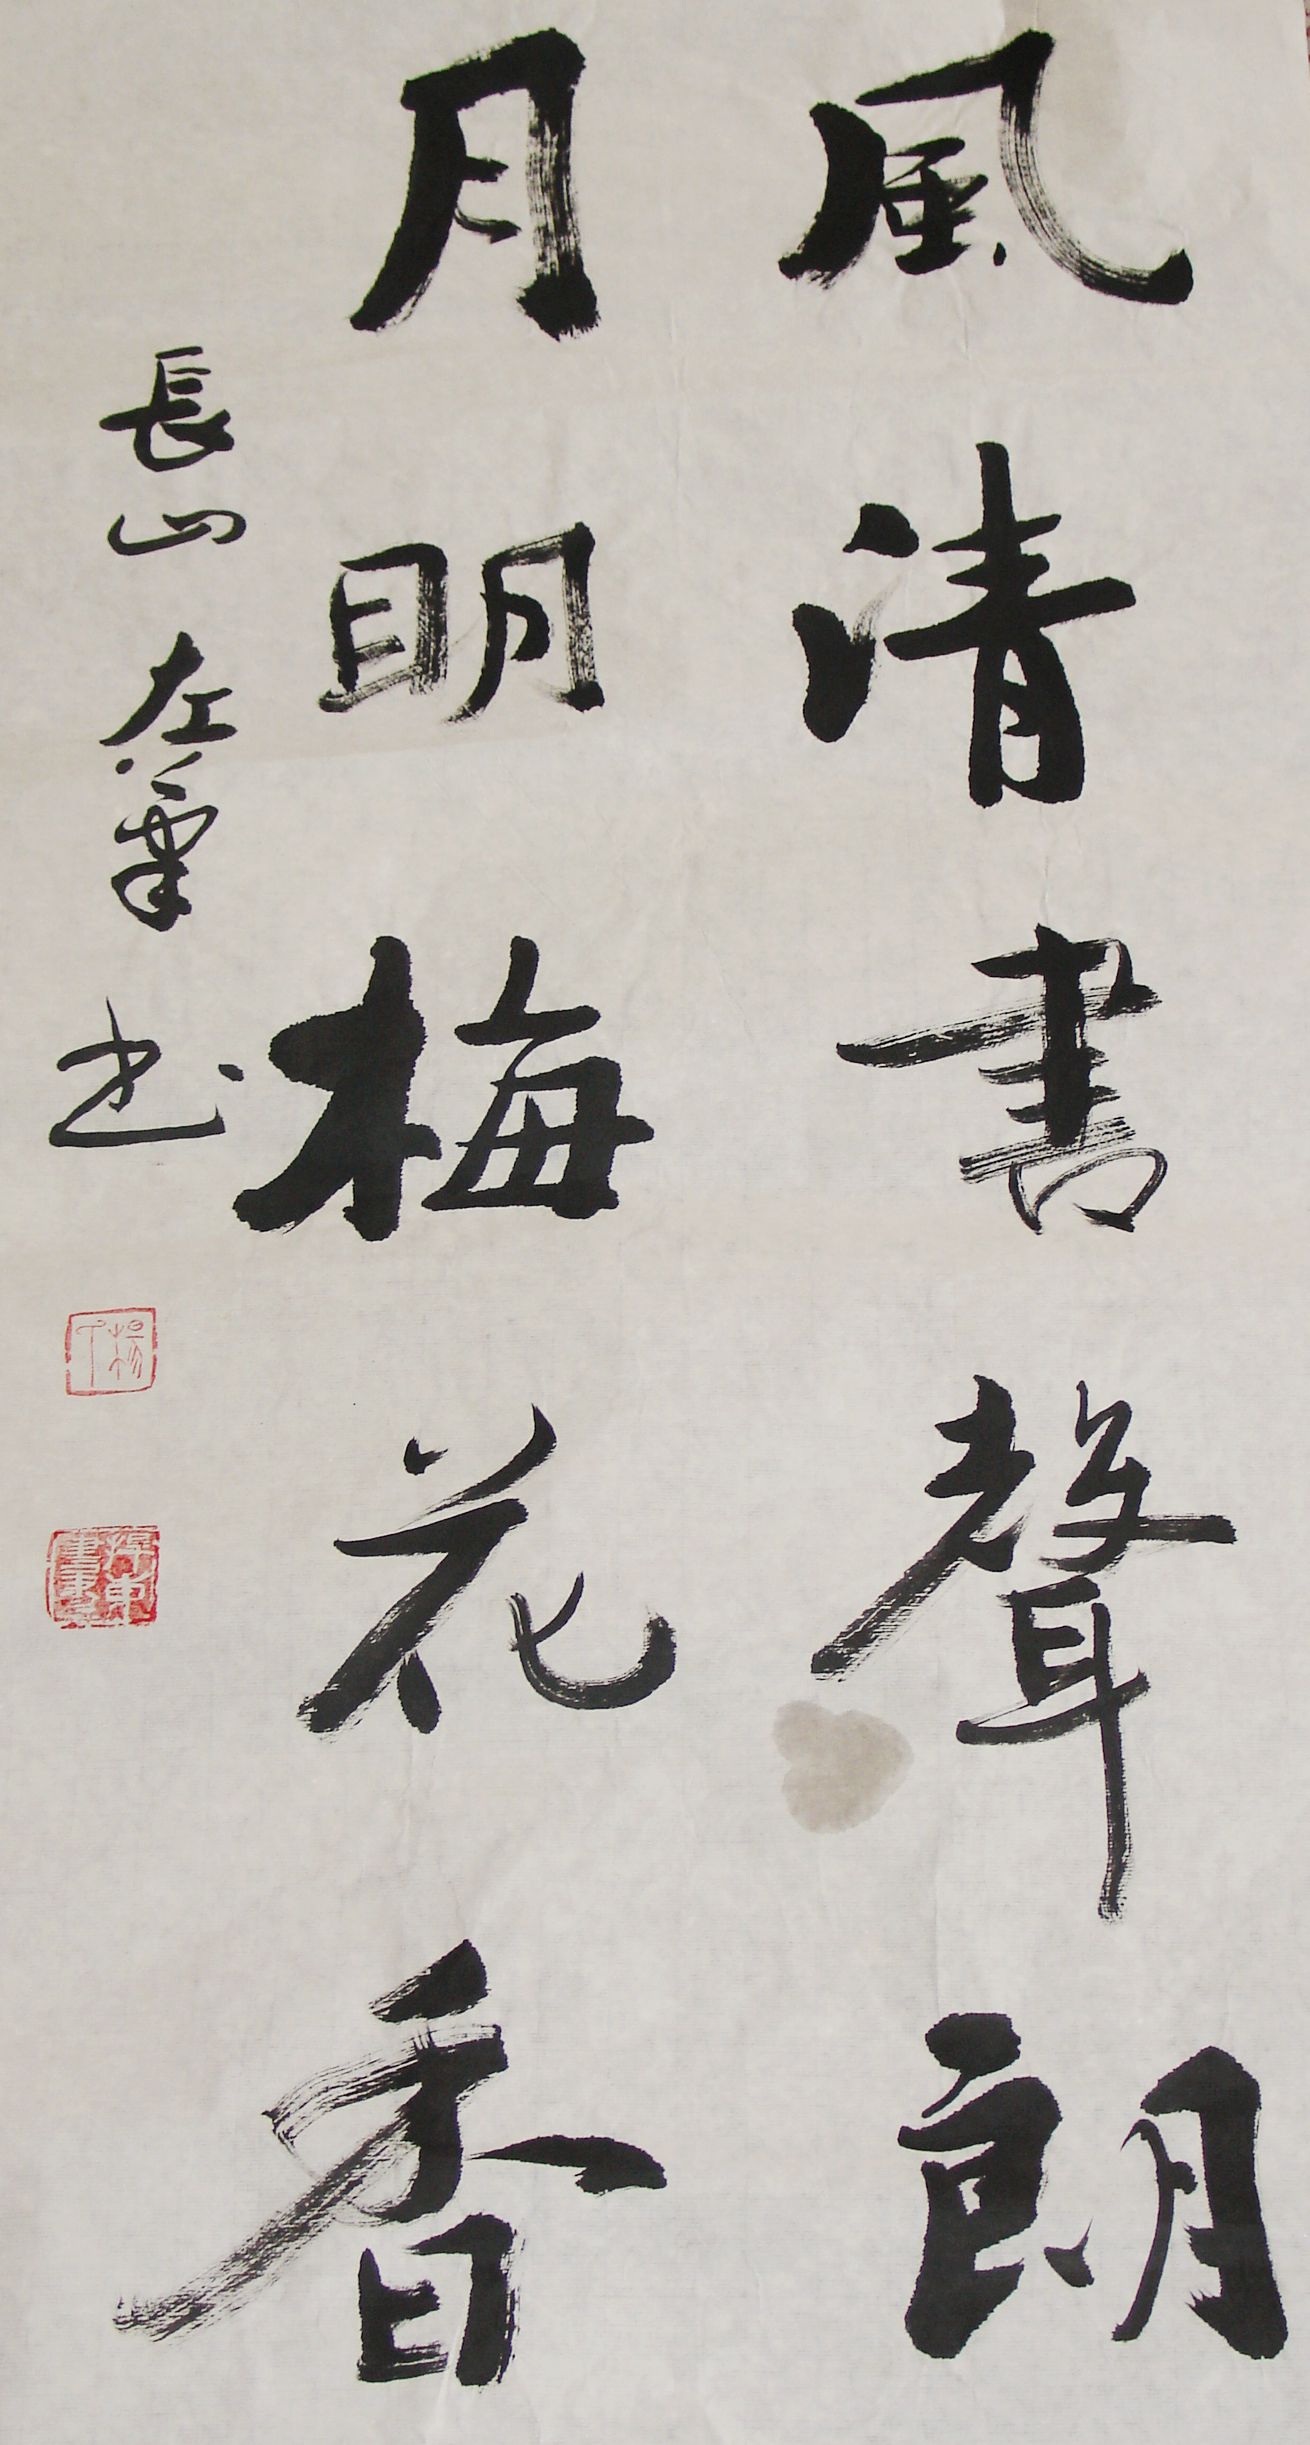 風清書聲朗
月明梅花香
長山左筆书